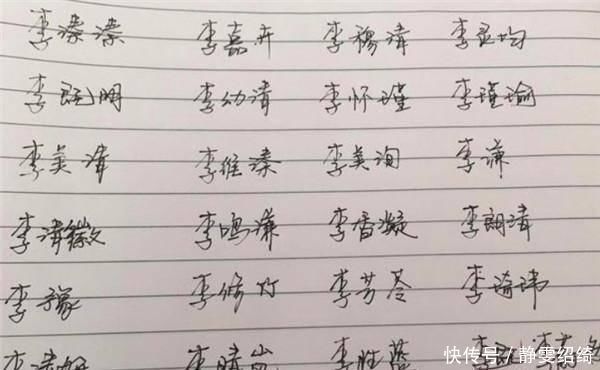 李溱溱 李嘉卉 李穆清 李孟均
李剛明 李幼清 李怀瑾 李瑾瑜
李美清 李维溱 李美洵 李谦
李清徽 李鸣濂 李香凝 李朗清
李豫 李修竹 李芳苓 李琦玮
李清妍 李晴岚 李胜蓝
快传号/静雯绍绮